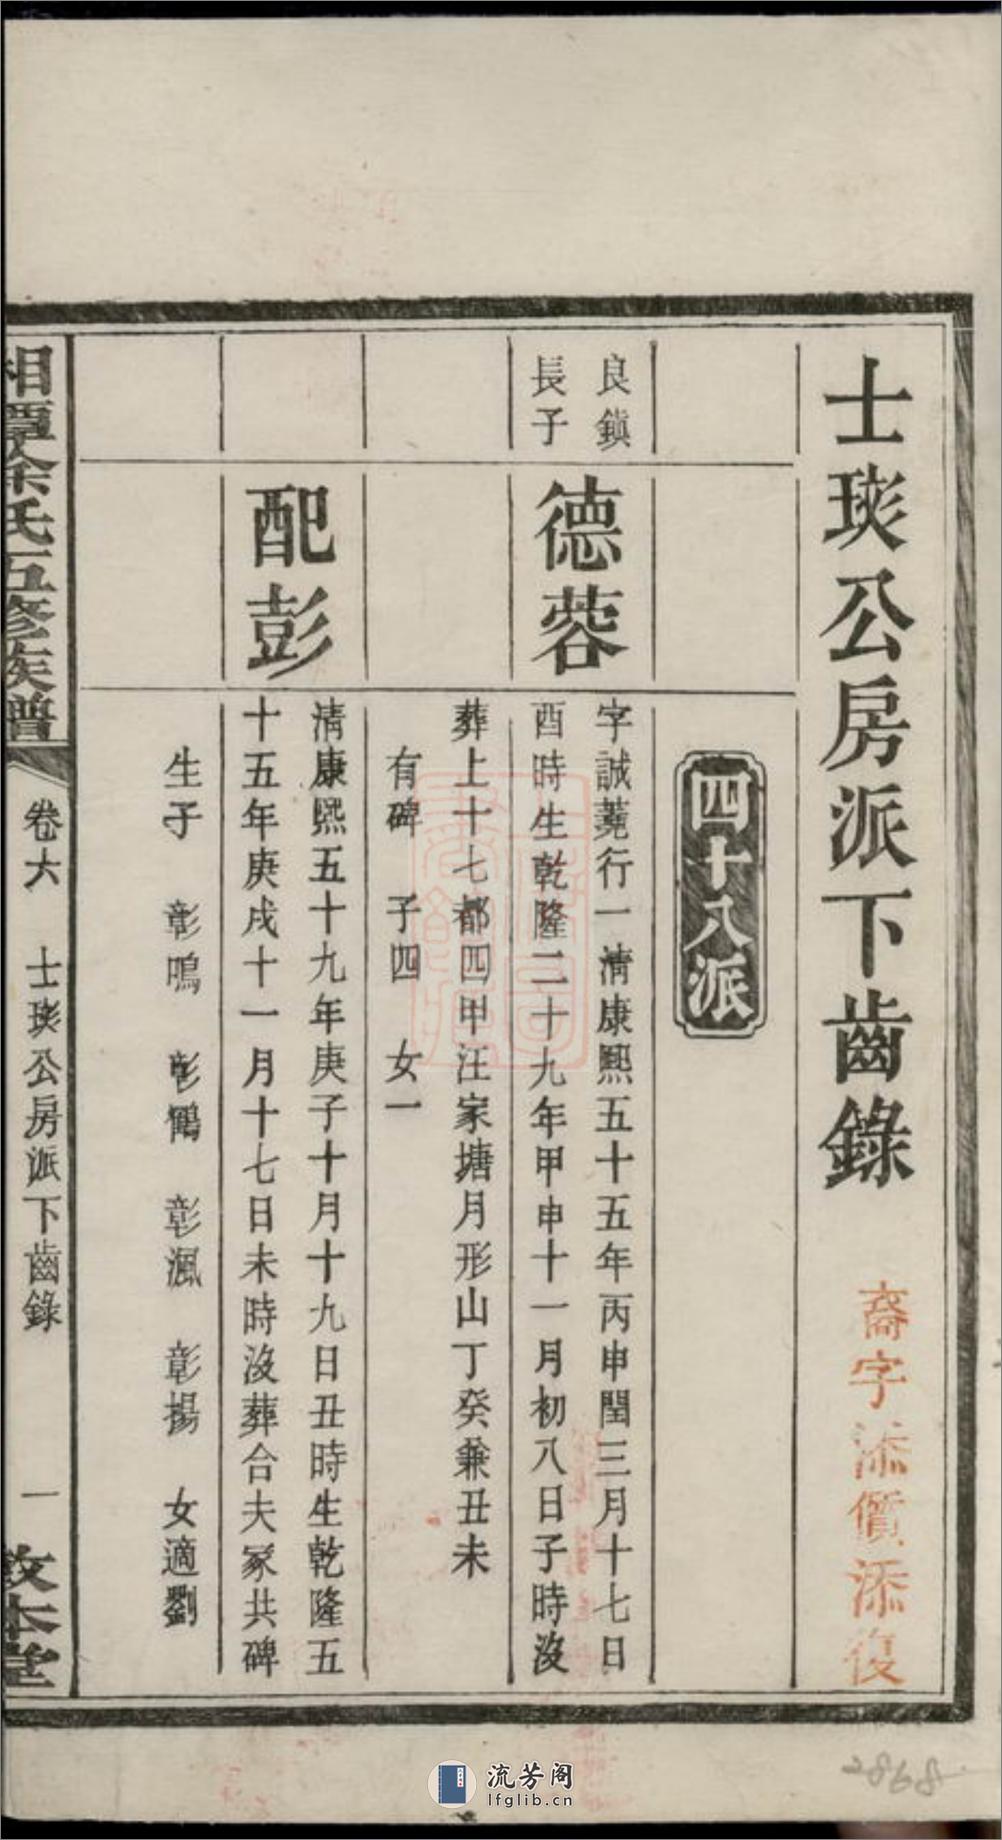 士琰公房派下齒錄
裔字添價添復
四十八派
良鎮
長子
德蓉
字誠蕘行一清康熙五十五年丙申閏三月十七日
酉時生乾隆二十九年甲申十一月初八日子時沒
葬上十七都四甲汪家塘月形山丁癸兼丑未
有碑 子四 女一
配彭
清康熙五十九年庚子十月十九日丑時生乾隆五
十五年庚戌十一月十七日未時沒葬合夫冢共碑
生子 彰鳴 彰鶴 彰渢 彰揚 女適劉
湘潭徐氏五修族譜
卷六 士琰公房派下齒錄 一
敦本堂
2868
流芳阁
lfglib.cn